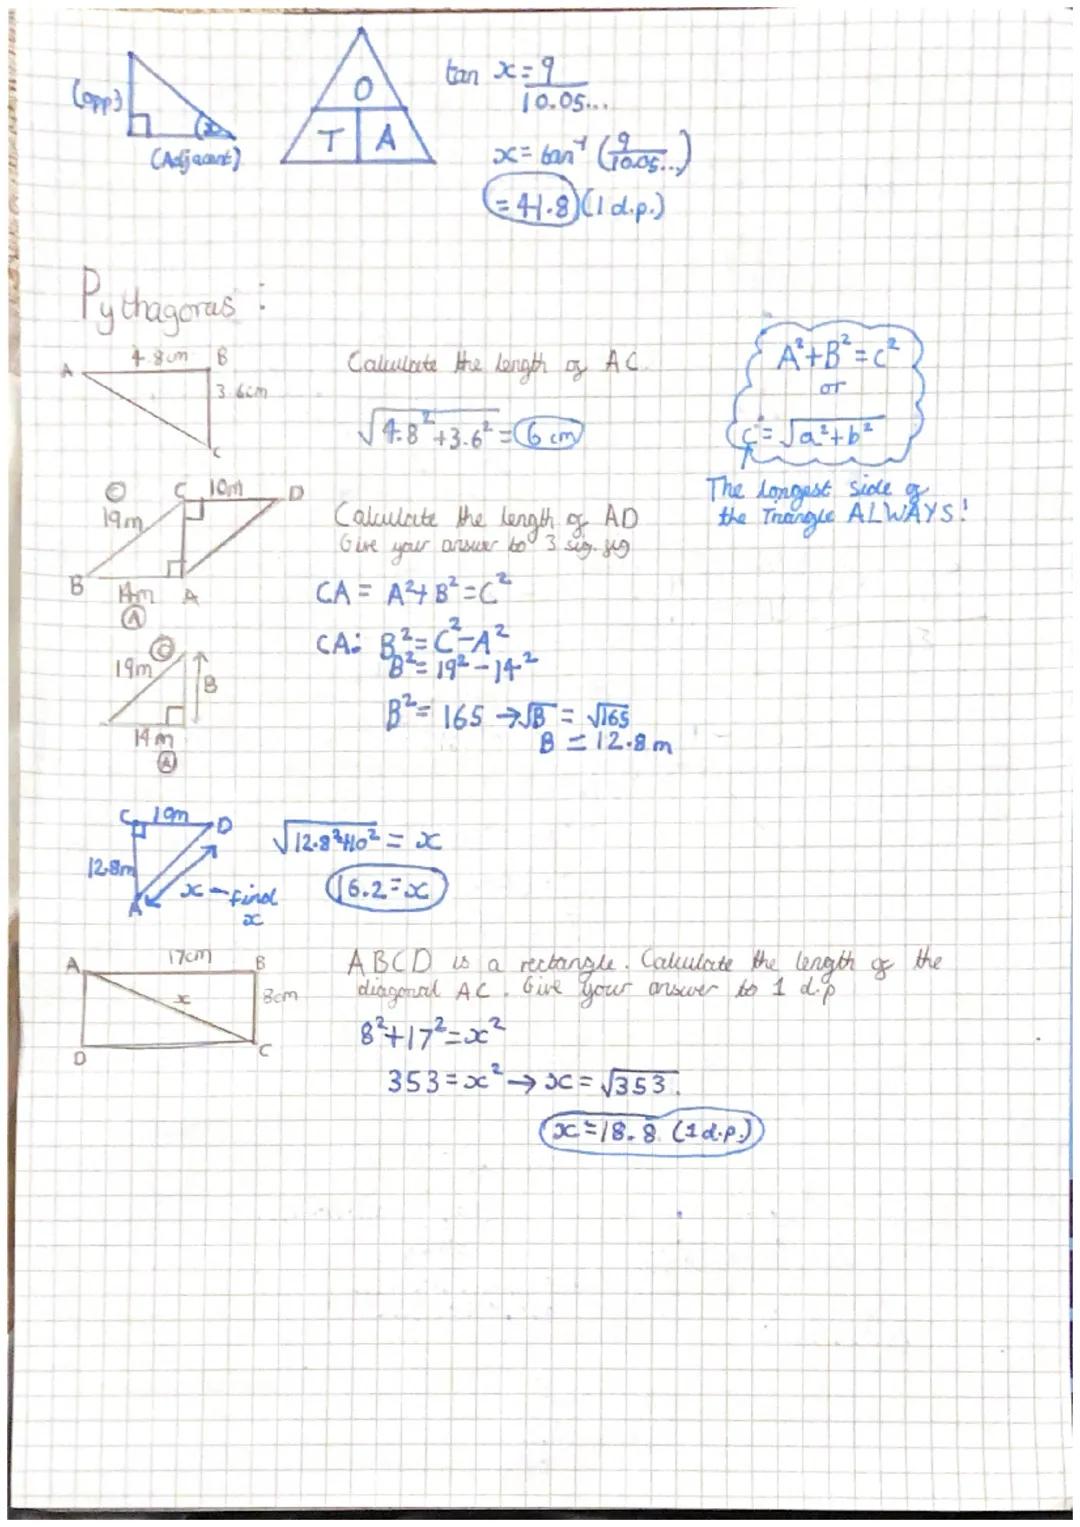 (opp)
x
(Adjacent)
O
T A
tan x = 9
10.05...
x = tan⁻¹ (9
10.05...)
= 41.8 (1 d.p.)
Pythagoras :
4.8cm
A
B
3.6cm
C
Calculate the length of AC
√4.8²+3.6² = 6 cm
A²+B²=C²
or
c = √a²+b²
The longest side of
the Triangle ALWAYS!
C
19m
C 10m D
B 14m A
A
Calculate the length of AD
Give your answer to 3 sig. fig
CA = A²+B²=C²
CA: B²=C²-A²
B²=19²-14²
B²= 165 → √B = √165
B = 12.8m
C
19m
B
14m
A
C 10m D
12.8m
A
x - find
x
√12.8²+10² = x
16.2=x
A 17cm B
x
8cm
D C
ABCD is a rectangle. Calculate the length of the
diagonal AC. Give your answer to 1 d.p
8²+17²=x²
353=x² → x=√353.
x=18.8 (1 d.p.)